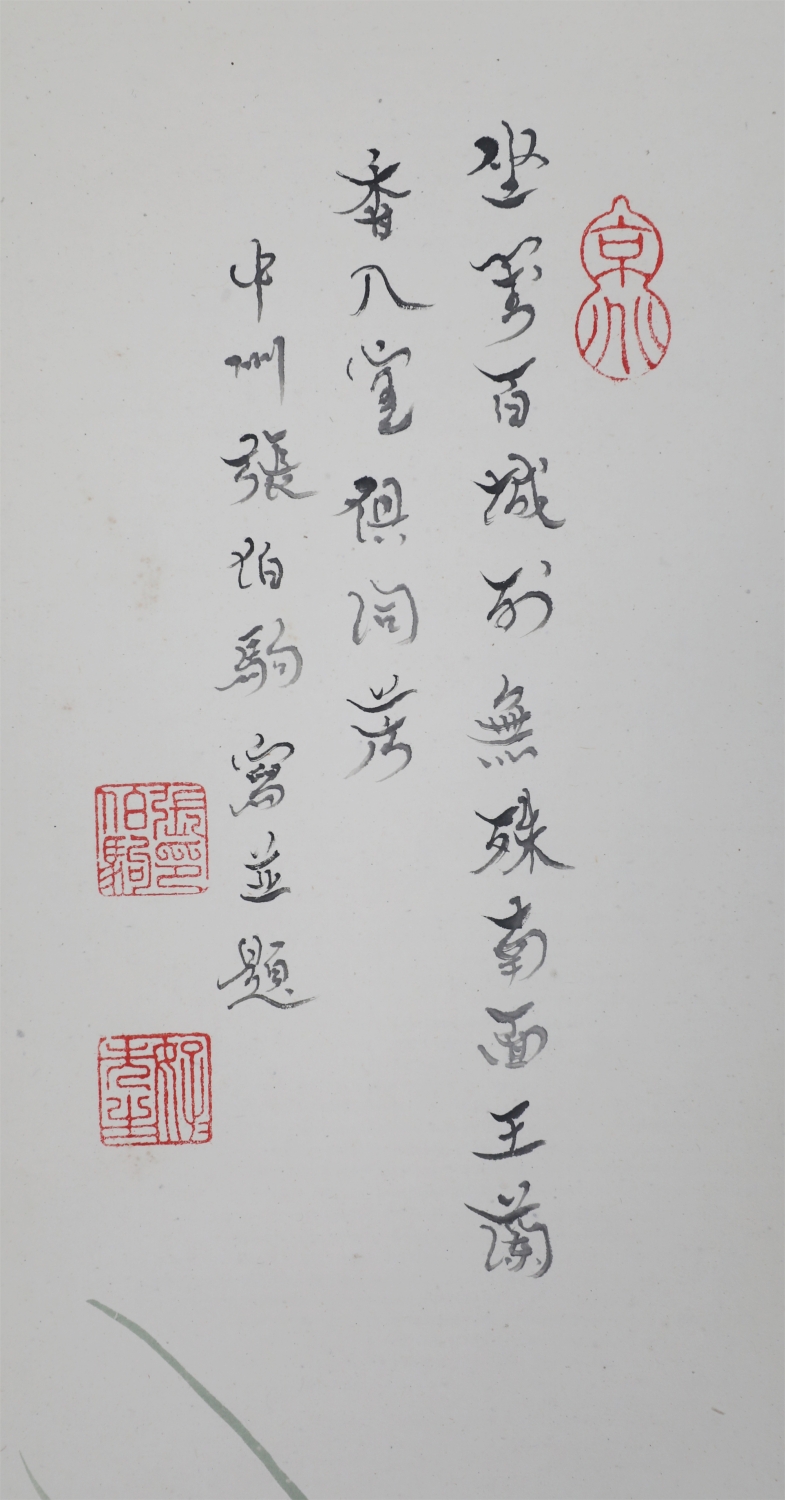 京兆
坐對百城列無殊南面王蘭
香入室俱同芳
中州張伯駒寫並題
張伯駒印
好好先生